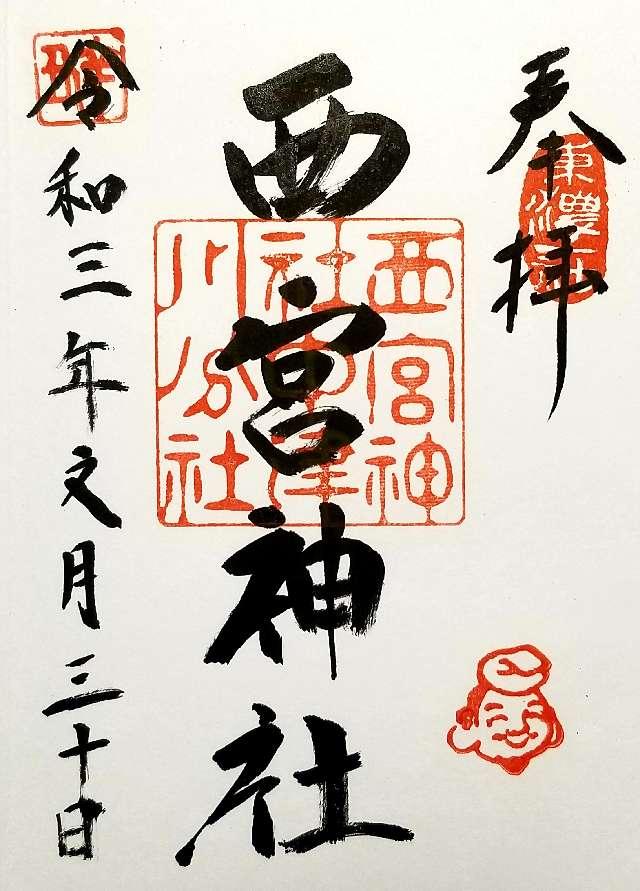 奉拝
東濃
西宮神社
西宮神
社中津
川分社
令和三年文月三十日